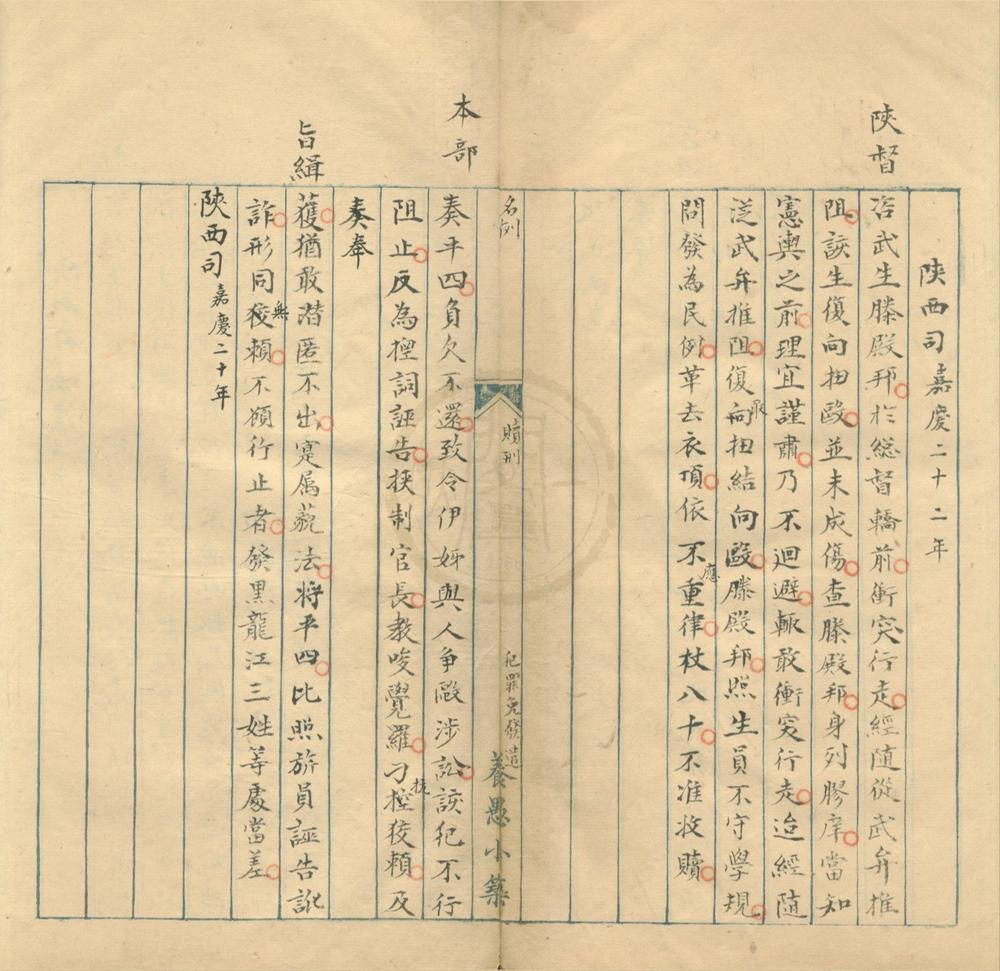 陝西司嘉慶二十二年
陝督
咨武生滕殿邦於總督轎前衝突行走經隨從武弁推
阻該生復向扭毆並未成傷查滕殿邦身列膠庠當知
憲輿之前理宜謹肅乃不迴避輒敢衝突行走迨經隨
從武弁推阻復向扭結向毆滕殿邦照生員不守學規
問發為民例革去衣頂依不應重律杖八十不准收贖
名例
贖刑
犯罪免發遣
養愚小築
本部
奏平四負欠不還致令伊姊與人爭毆涉訟該犯不行
阻止反為捏詞誣告挾制官長教唆覺羅刁控抗狡賴及
奏奉
旨緝
獲猶敢潛匿不出寔屬藐法將平四比照旂員誣告訛
詐形同無賴不顧行止者發黑龍江三姓等處當差
陝西司嘉慶二十年